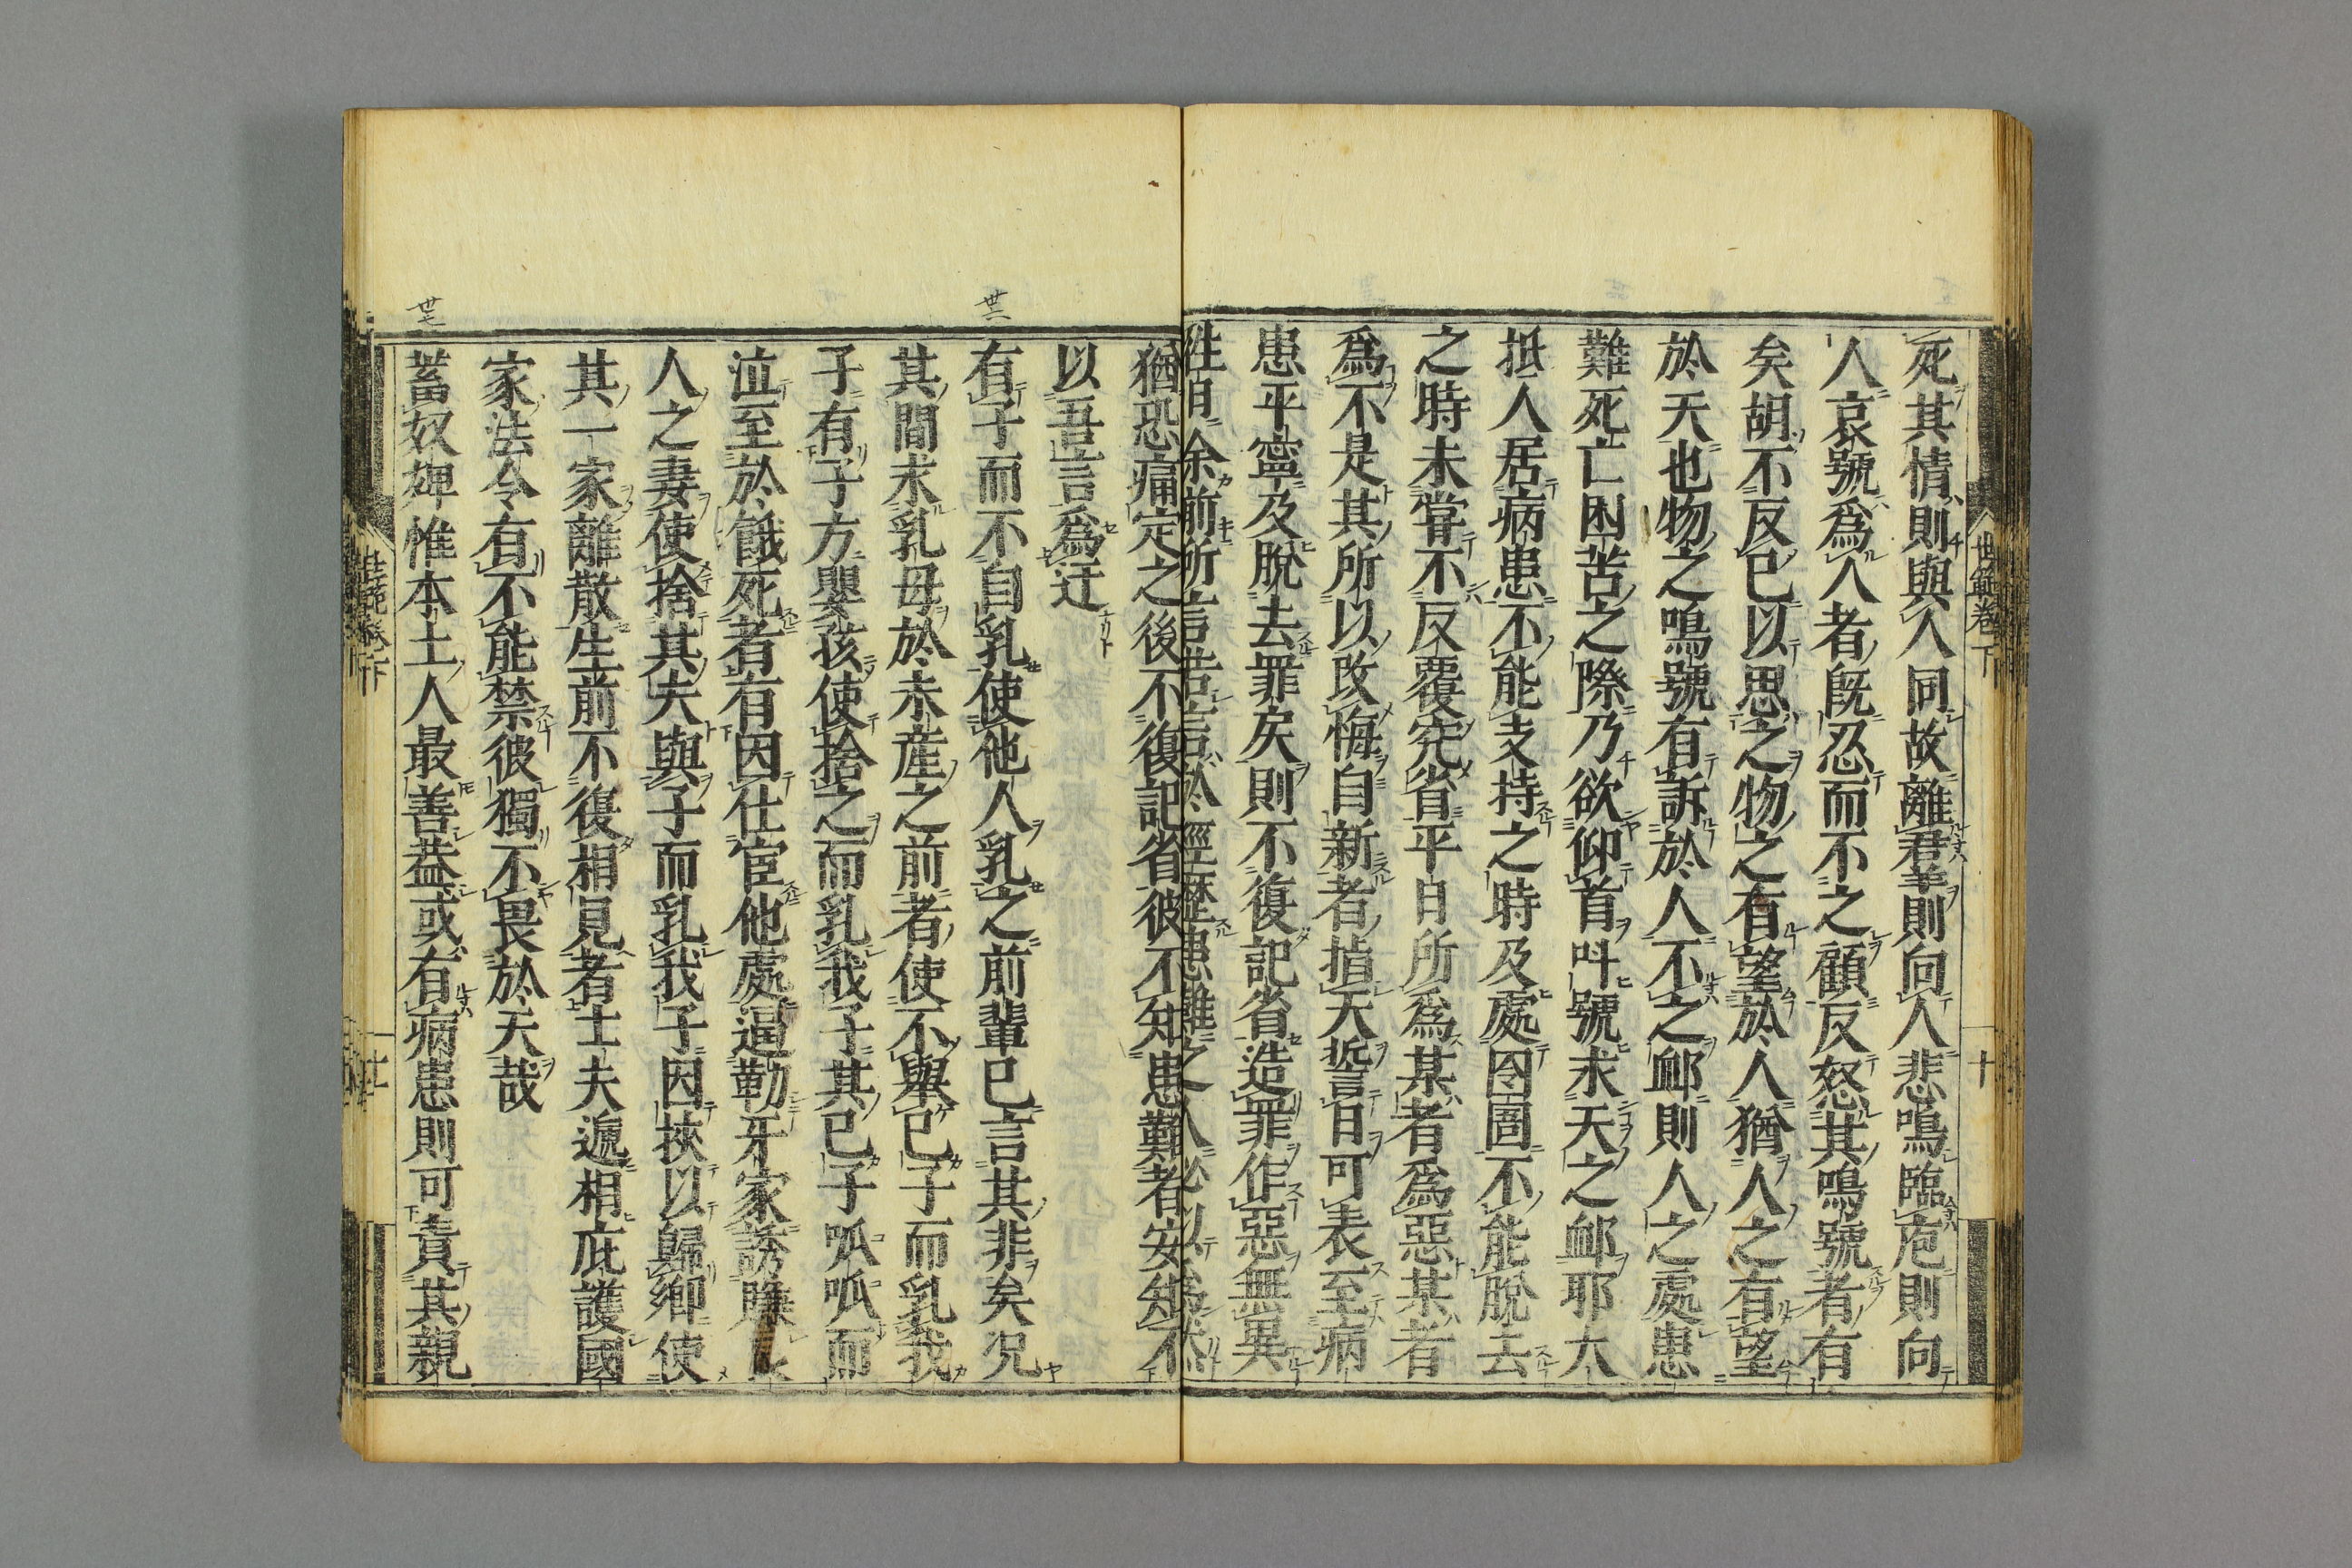 世範卷下
十
死其情則與人同故離羣則向人悲鳴臨庖則向
人哀號爲人者既忍而不之顧反怒其鳴號者有
矣胡不反已以思之物之有望於人猶人之有望
於天也物之鳴號有訴於人不之衈則人之處患
難死亡困苦之際乃欲仰首叫號求天之衈耶大
抵人居病患不能支持之時及處囹圄不能脫去
之時未嘗不反覆究省平日所爲某者爲惡某者
爲不是其所以改悔自新者指天誓日可表至病
患平寧及脫去罪戾則不復記省造罪作惡無異
往日余前所言若言於經歷患難之人必以爲然
猶恐痛定之後不復記省彼不知患難者安知不
以吾言爲迂
廿二
有子而不自乳使他人乳之前輩已言其非矣况
其間求乳母於未産之前者使不舉已子而乳我
子有子方嬰孩使捨之而乳我子其已子呱呱而
泣至於餓死者有因仕宦他處逼勒牙家誘賺良
人之妻使捨其夫與子而乳我子因挾以歸鄉使
其一家離散生前不復相見者士夫遞相庇護國
家法令有不能禁彼獨不畏於天哉
廿七
蓄奴婢惟本土人最善葢或有病患則可責其親
世範卷下
十一